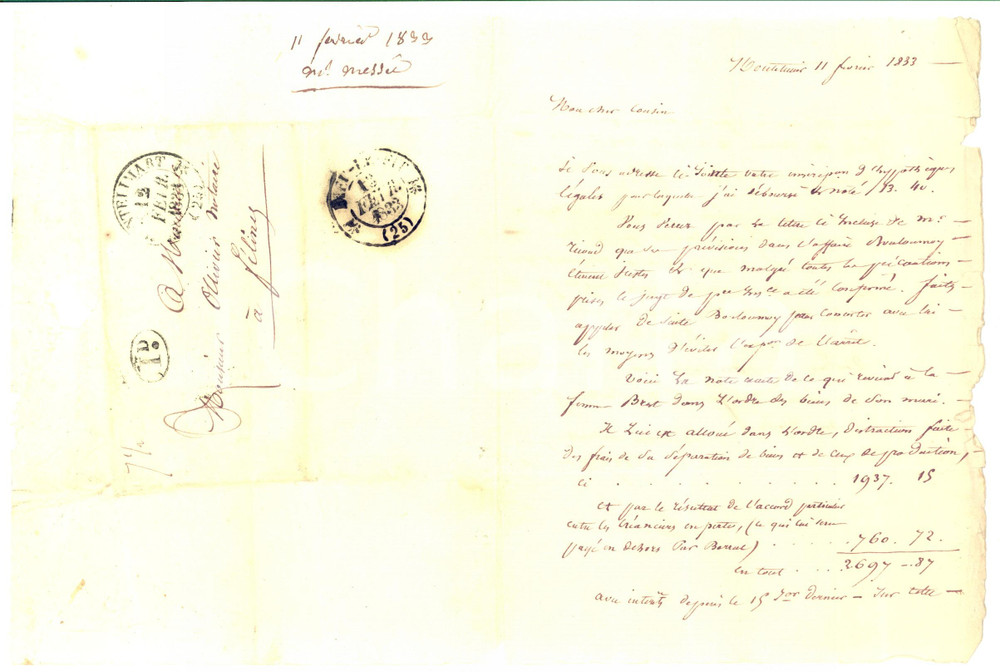 11 février 1833
Mr Messié
MONTELIMART
12
FEVR.
1833
(25)
12
FEVR.
1833
(25)
A Monsieur
Monsieur Olivier notaire
à Félines
Montélimar 11 février 1833
Mon cher cousin
Je vous adresse ci jointe votre inscription d'hypothèques
légales pour laquelle j'ai déboursé 13. 40.
Vous verrez par la lettre ci incluse de Mr
que Ses prévisions dans l'affaire
justes et que malgré toutes les précautions
prises le jugt de pre Insce a été confirmé. faites
appeler de suite pour concerter avec lui
les moyens d'éviter l'expon de l'arrêt.
Voici la note exacte de ce qui revient à la
femme Brest dans l'ordre des biens de son mari.
Il lui est alloué dans l'ordre, distraction faite
des frais de sa séparation de biens et de ceux de production,
ci . . . . . . . . . . . 1937. 15
et par le résultat de l'accord particulier
entre les créanciers en perte, (ce qui lui sera
payé en dehors par ) . . . . . 760. 72.
en tout . . . 2697 - 87
avec intérêts depuis le 15 dernier - Sur cette